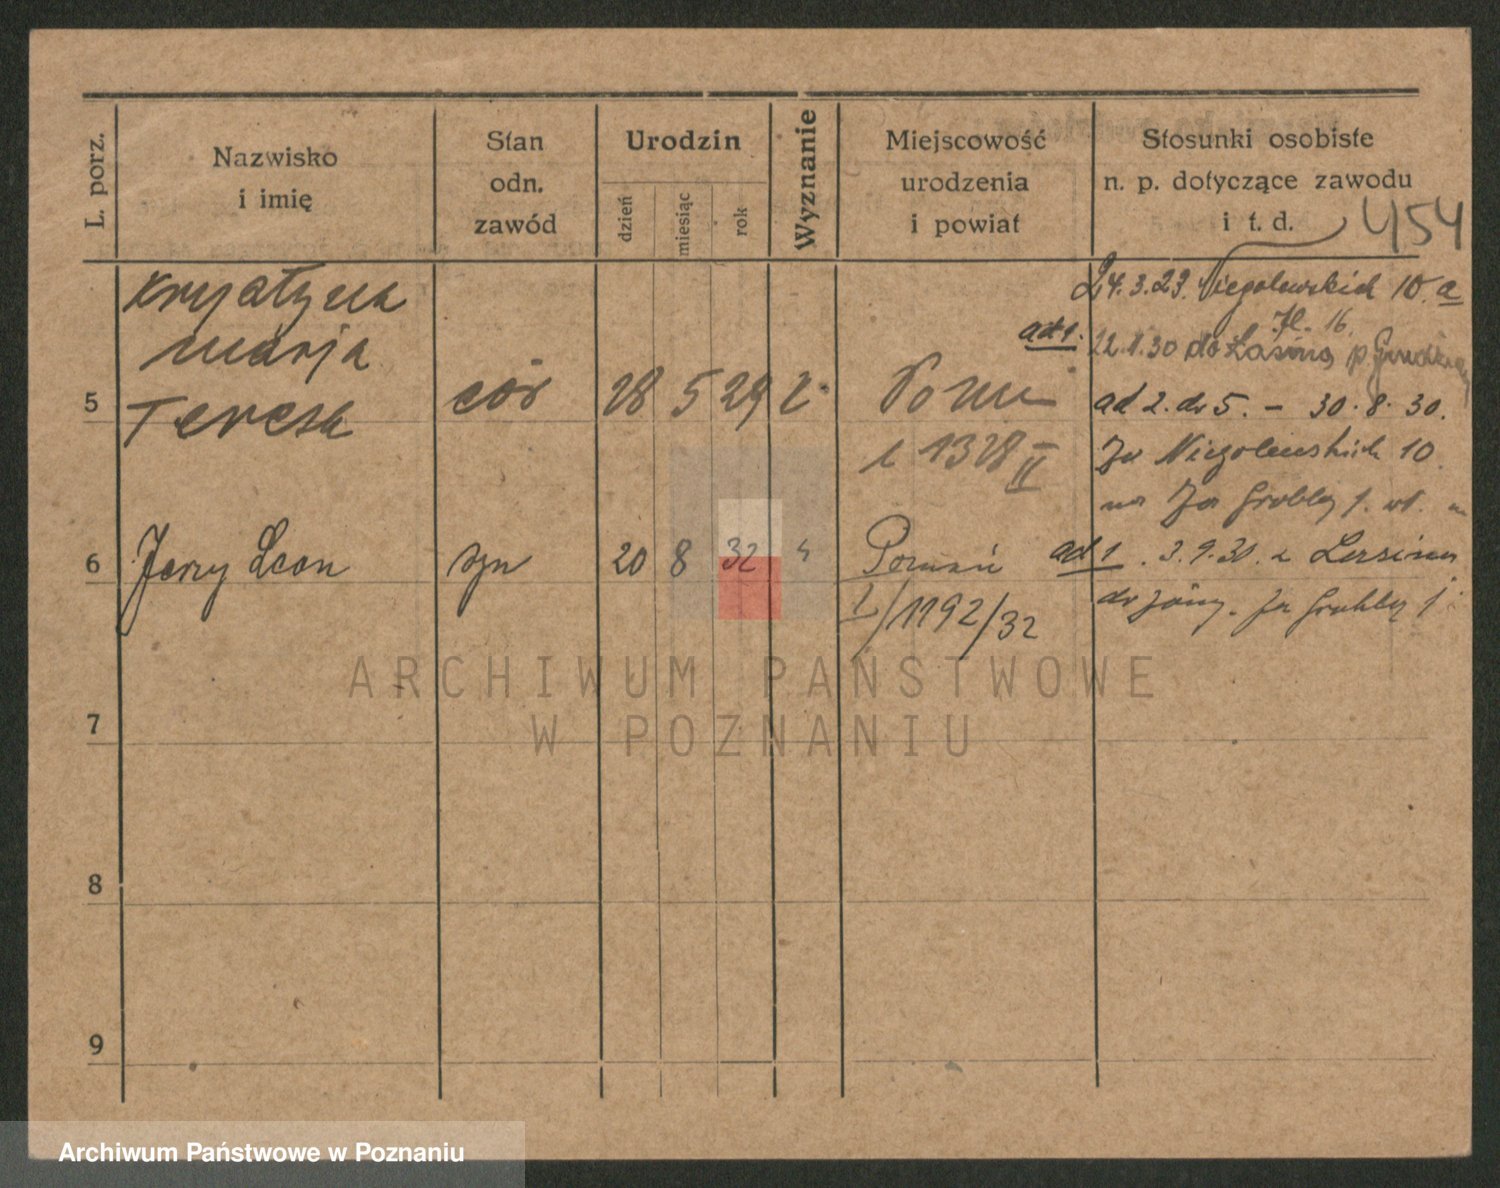 L. porz.
Nazwisko
i imię
Stan
odn.
zawód
Urodzin
dzień
miesiąc
rok
Wyznanie
Miejscowość
urodzenia
i powiat
Stosunki osobiste
n. p. dotyczące zawodu
i t. d.
454
24.3.23. Niegolewskich 10 a
H. 16
ad 1. 22.1.30 do Łasina p
5
Krystyna
Marja
Teresa
cór
28 5 29
Pozn
1328 II
ad 2. do 5. - 30.8.30.
Niegolewskich 10
na Za Groblą 1.
6 Jerzy Leon syn 20 8 32 " Poznań
I/1192/32
ad 1. 3.9.30. z
Za Groblą 1
7
8
9
ARCHIWUM PAŃSTWOWE
W POZNANIU
Archiwum Państwowe w Poznaniu